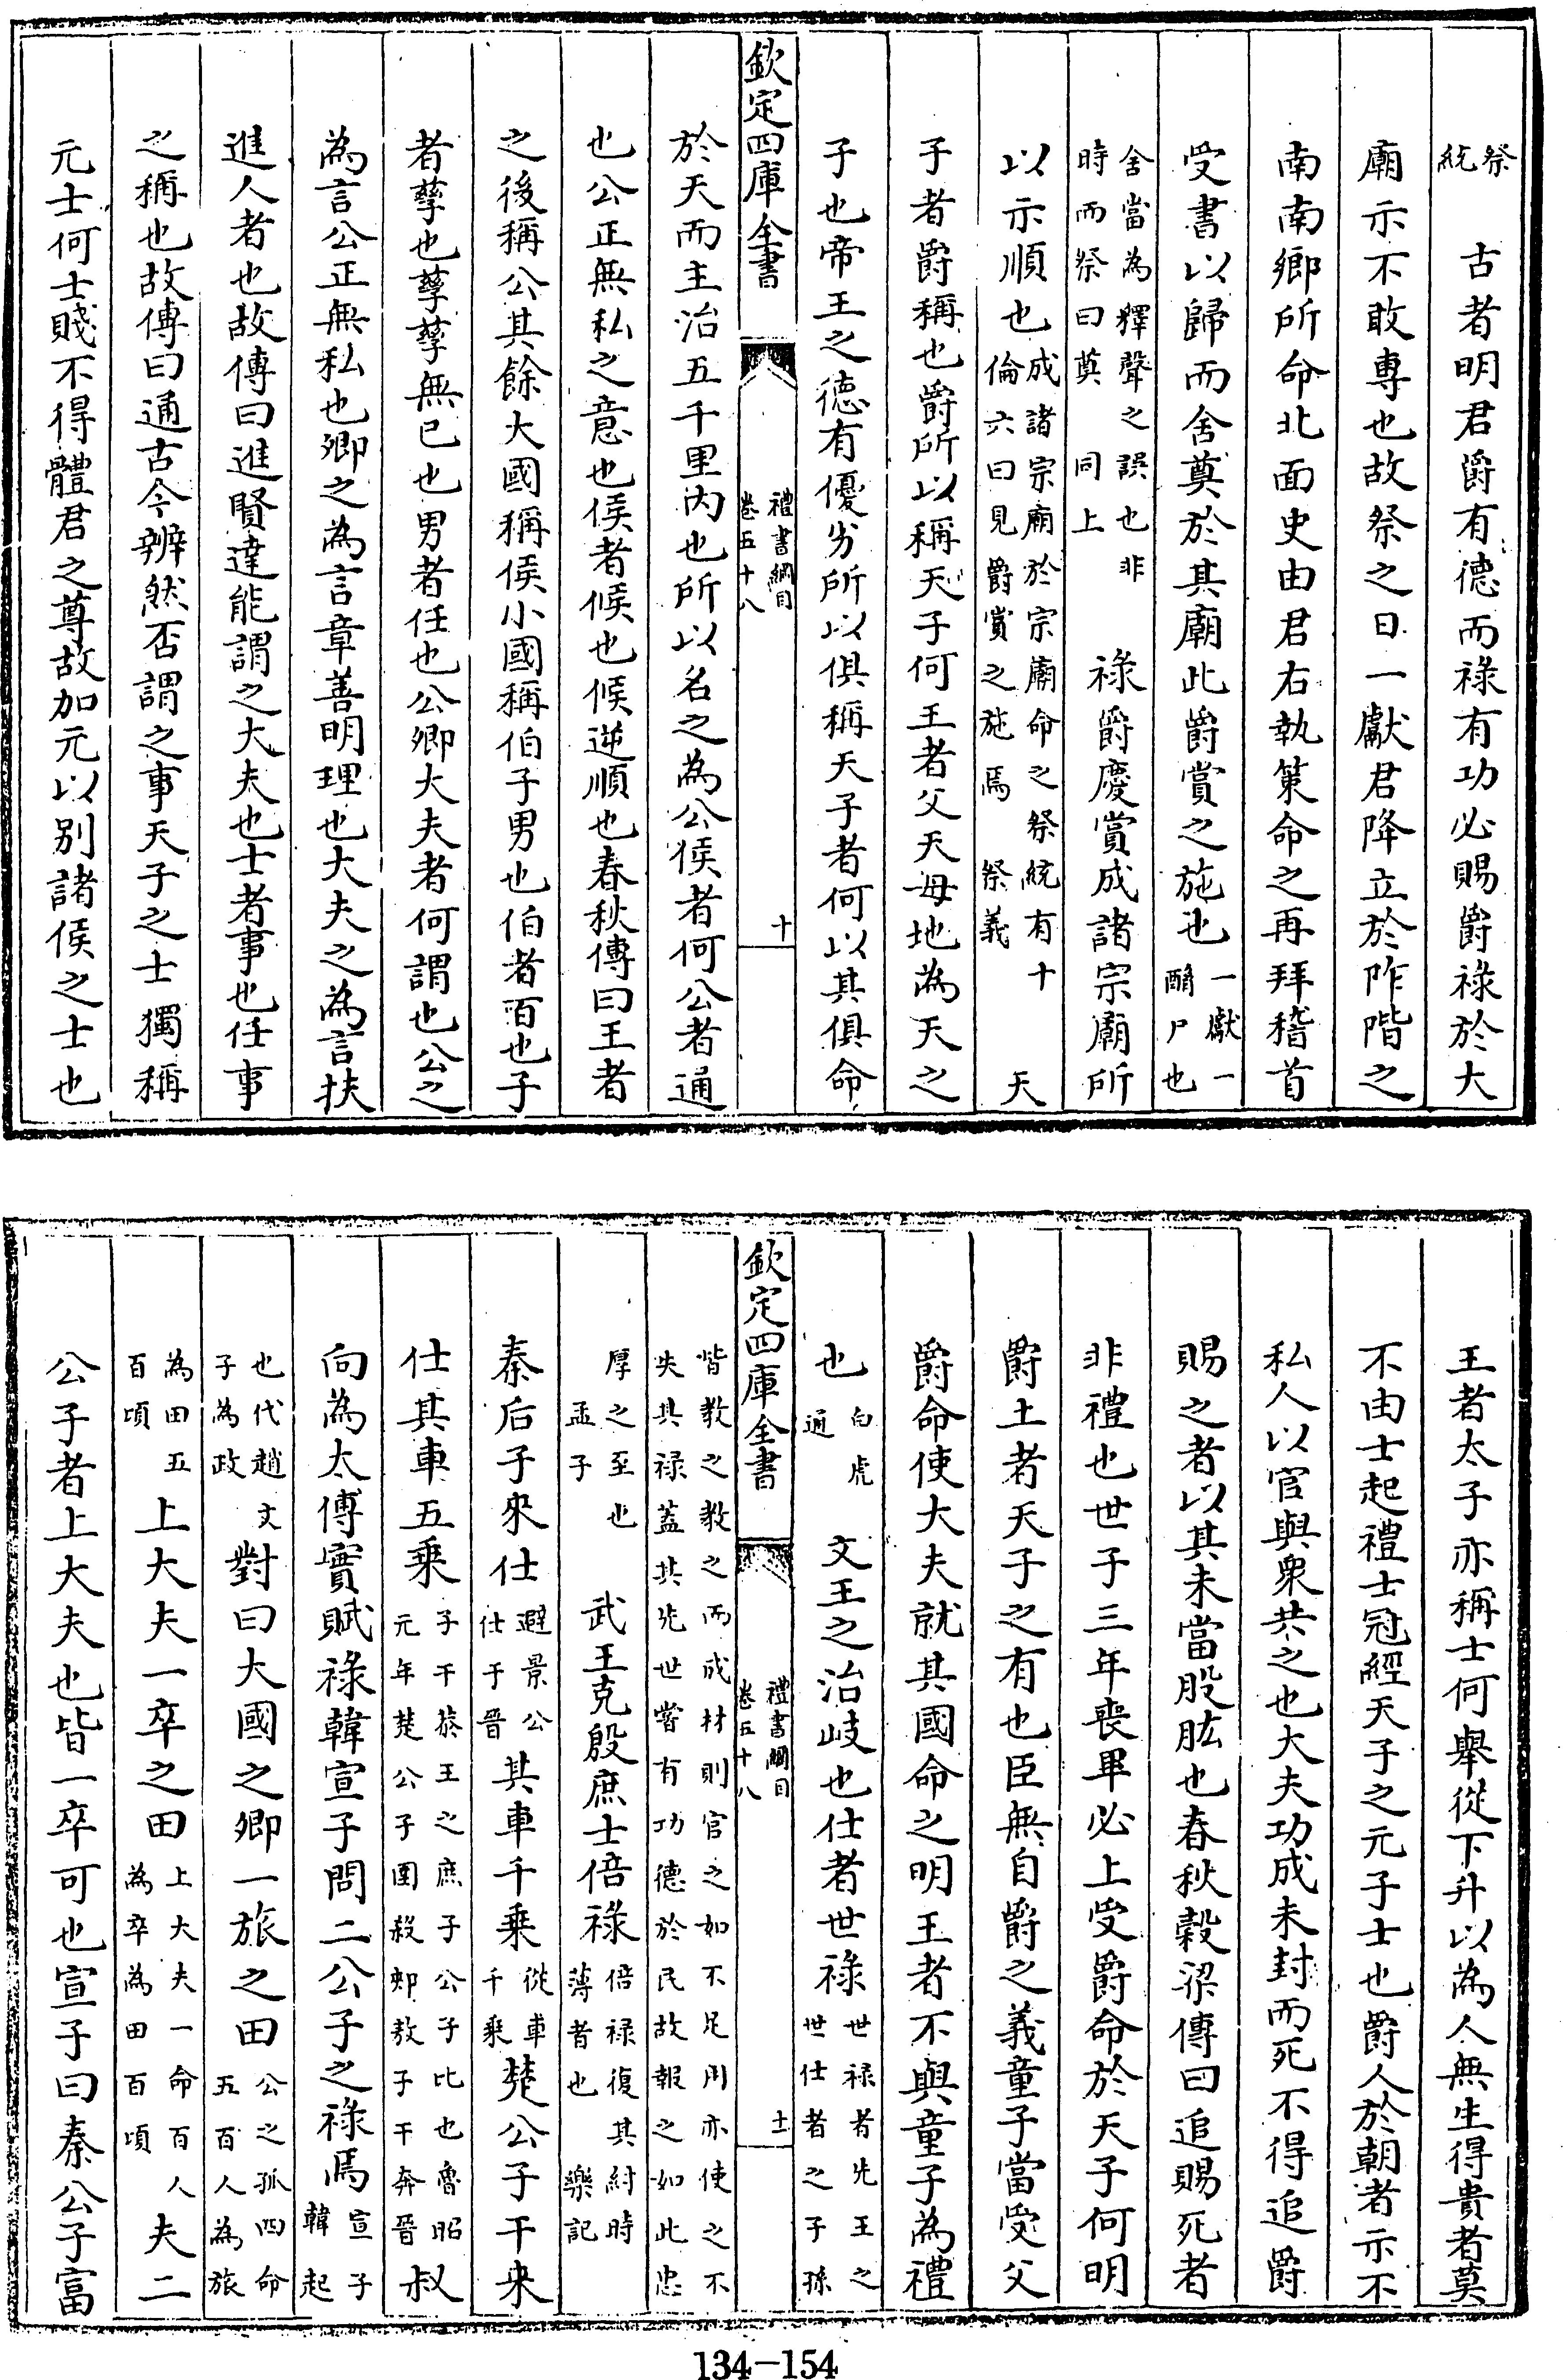 祭統　古者明君爵有德而祿有功必賜爵祿於大
廟示不敢專也故祭之日一獻君降立於阼階之
南南鄉所命北面史由君右執策命之再拜稽首
受書以歸而舍奠於其廟此爵賞之施也一獻一酳尸也
舍當為釋聲之誤也非時而祭曰奠　同上　祿爵慶賞成諸宗廟所
以示順也成諸宗廟於宗廟命之祭統有十倫六曰見爵賞之施焉　祭義　天
子者爵稱也爵所以稱天子何王者父天母地為天之
子也帝王之德有優劣所以俱稱天子者何以其俱命
欽定四庫全書　禮書綱目　卷五十八　十
於天而主治五千里內也所以名之為公侯者何公者通
也公正無私之意也侯者候也候逆順也春秋傳曰王者
之後稱公其餘大國稱侯小國稱伯子男也伯者百也子
者孳也孳孳無已也男者任也公卿大夫者何謂也公之
為言公正無私也卿之為言章善明理也大夫之為言扶
進人者也故傳曰進賢達能謂之大夫也士者事也任事
之稱也故傳曰通古今辨然否謂之事天子之士獨稱
元士何士賤不得體君之尊故加元以别諸侯之士也
王者太子亦稱士何舉從下升以為人無生得貴者莫
不由士起禮士冠經天子之元子士也爵人於朝者示不
私人以官與衆共之也大夫功成未封而死不得追爵
賜之者以其未當股肱也春秋穀梁傳曰追賜死者
非禮也世子三年喪畢必上受爵命於天子何明
爵土者天子之有也臣無自爵之義童子當受父
爵命使大夫就其國命之明王者不與童子為禮
也　白虎通　文王之治岐也仕者世祿世祿者先王之世仕者之子孫
欽定四庫全書　禮書綱目　卷五十八　十一
皆教之教之而成材則官之如不足用亦使之不失其祿蓋其先世嘗有功德於民故報之如此忠
厚之至也　孟子　武王克殷庶士倍祿倍祿復其紂時薄者也　樂記
秦后子來仕避景公仕于晉其車千乘從車千乘楚公子干来
仕其車五乗子干恭王之庶子公子比也魯昭元年楚公子圍殺郟敖子干奔晉叔
向為太傅實賦祿韓宣子問二公子之祿焉宣子韓起
也代趙文子為政對曰大國之卿一旅之田公之孤四命五百人為旅
為田五百頃上大夫一卒之田上大夫一命百人為卒為田百頃夫二
公子者上大夫也皆一卒可也宣子曰秦公子富
134-154